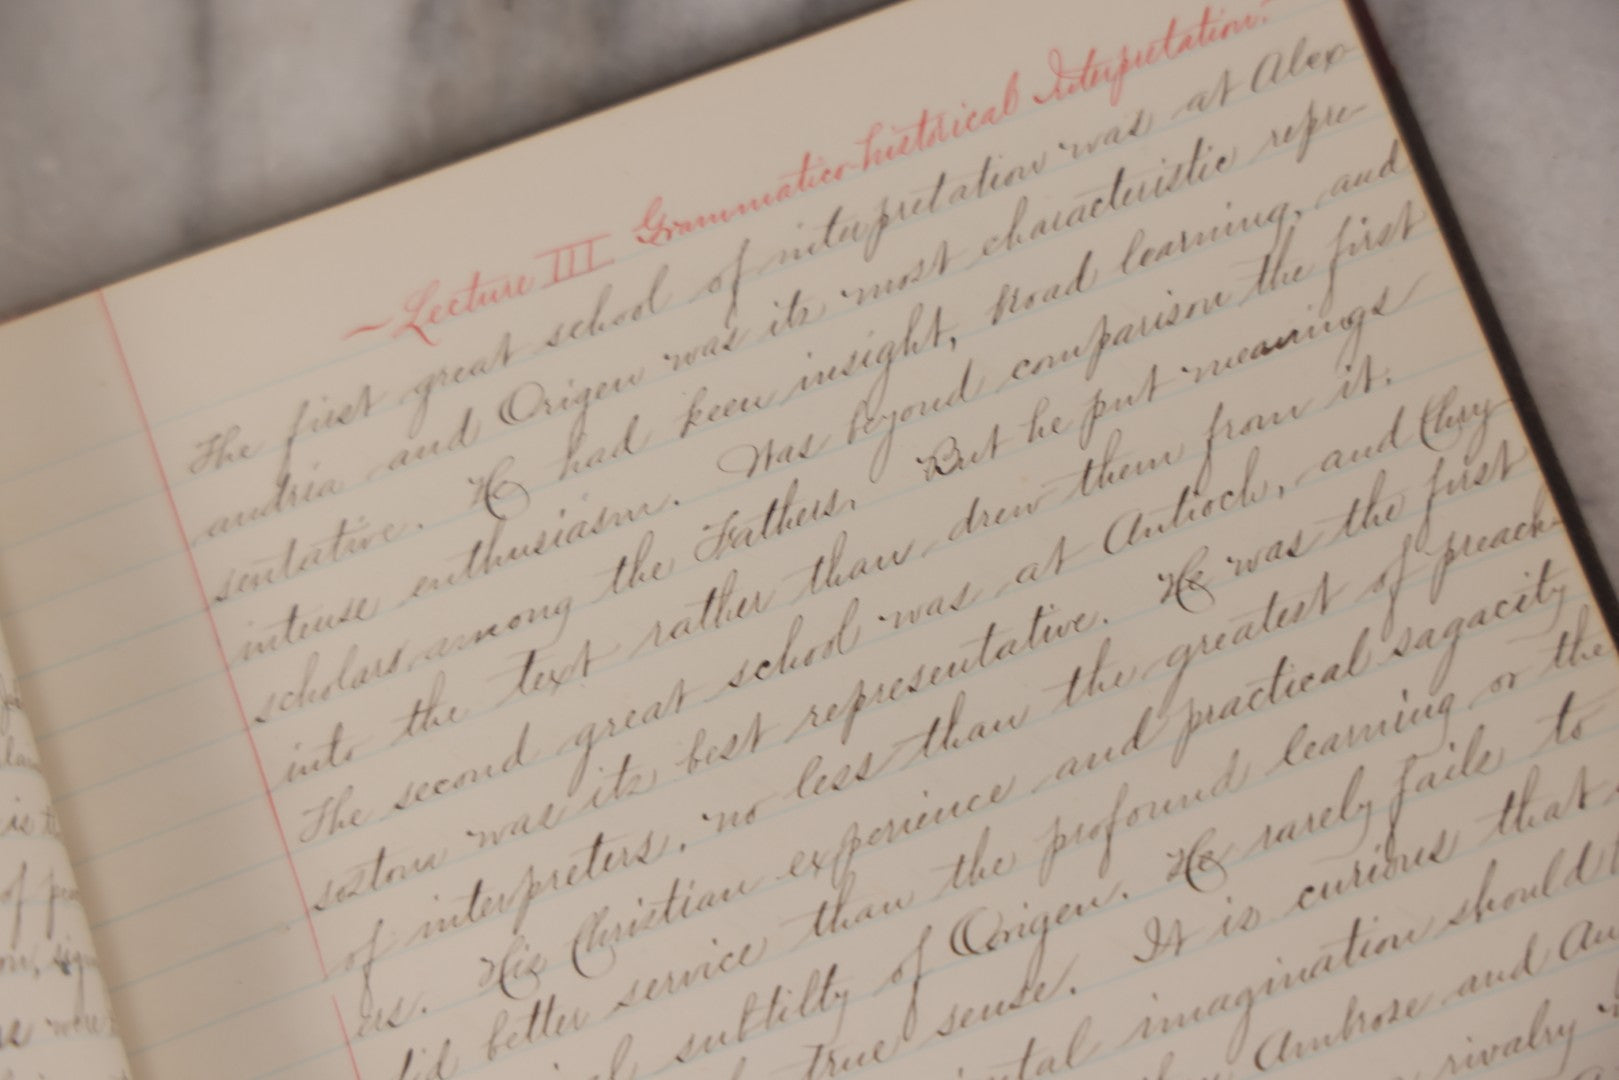 Lecture III Grammatico-historical Interpretation.
The first great school of interpretation was at Alex-
andria and Origen was its most characteristic repre-
sentative. He had keen insight, broad learning, and
intense enthusiasm. Was beyond comparison the first
scholar among the Fathers. But he put meanings
into the text rather than drew them from it.
The second great school was at Antioch, and Chry-
sostom was its best representative. He was the first
of interpreters, no less than the greatest of preach-
ers. His Christian experience and practical sagacity
did better service than the profound learning or the
subtilty of Origen. He rarely fails to
true sense. It is curious that
imagination should
Ambrose and
rivalry